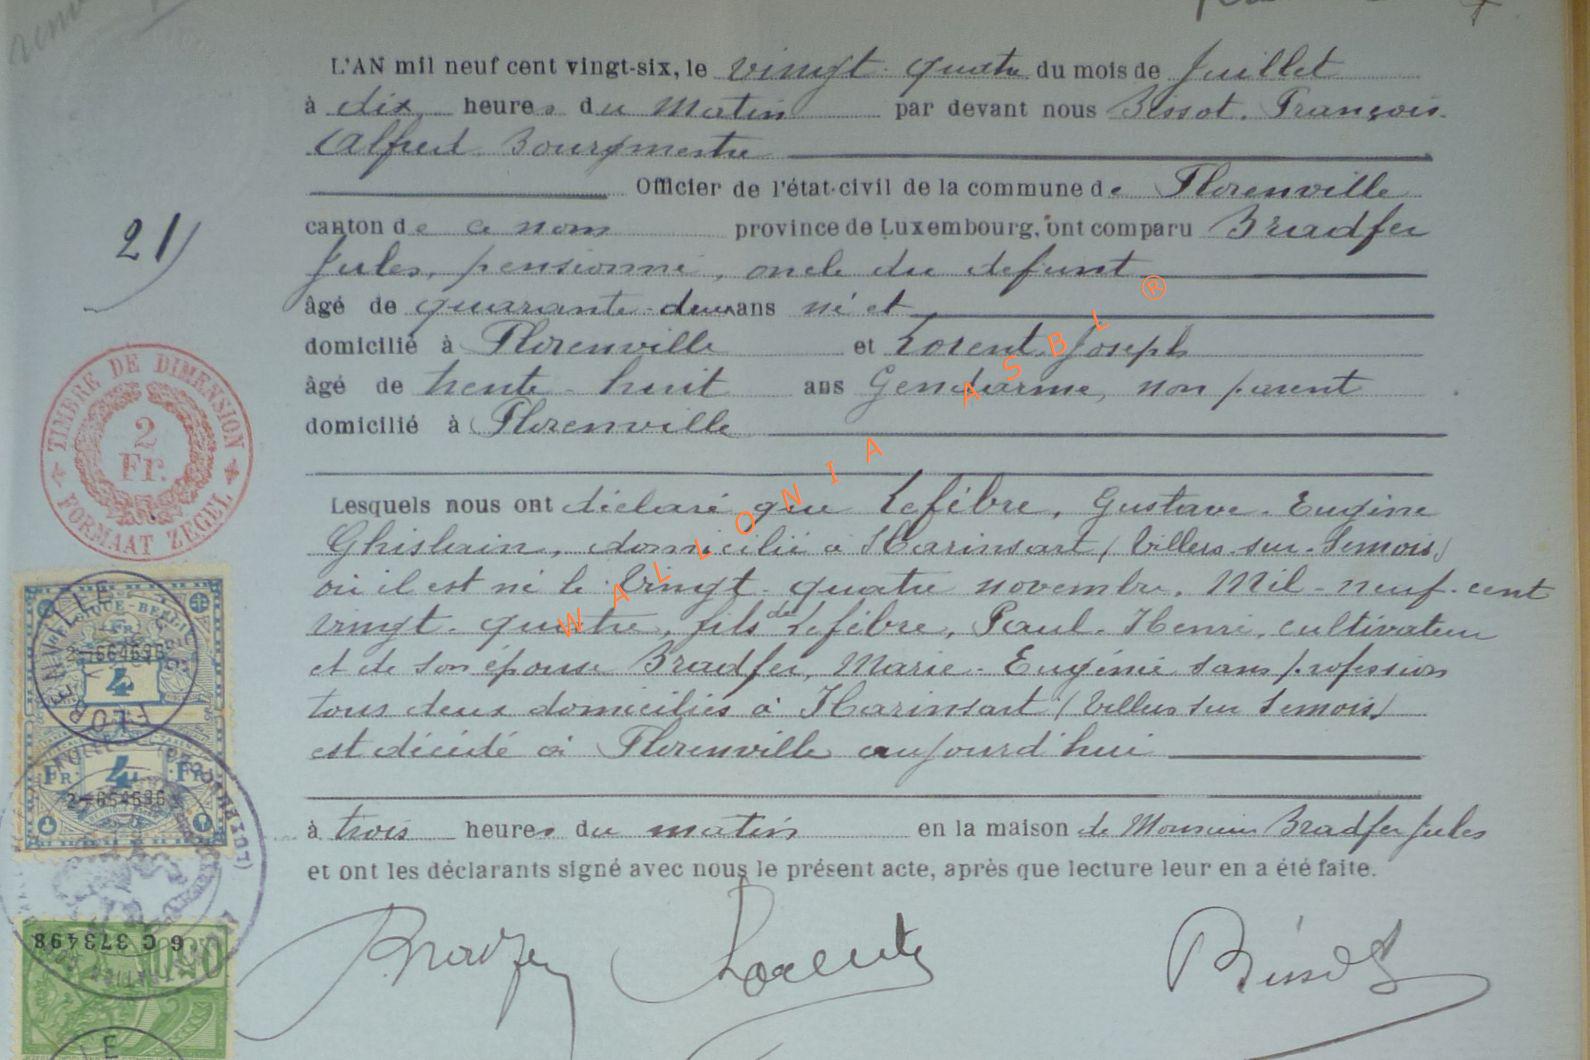 L'AN mil neuf cent vingt-six, le vingt-quatre du mois de Juillet
à dix heures du Matin par devant nous Bissot, François
Alfred Bourgmestre
Officier de l'état-civil de la commune de Florenville
canton de ce nom province de Luxembourg, ont comparu Bradfer
Jules, pensionné, oncle du defunt
âgé de quarante-deux ans né et
domicilié à Florenville et Lorent Joseph
âgé de trente-huit ans Gendarme, non parent
domicilié à Florenville
21
Lesquels nous ont déclaré que Lefèbre, Gustave-Eugène
Ghislain, domicilié à Harinsart (Villers-sur-Semois)
où il est né le Vingt-quatre novembre, Mil-neuf-cent
vingt-quatre, fils de Lefèbre, Paul-Henri, cultivateur
et de son épouse Bradfer, Marie-Eugénie sans profession
tous deux domiciliés à Harinsart (Villers sur Semois)
est décédé à Florenville aujourd'hui
à trois heures du matin en la maison de Monsieur Bradfer Jules
et ont les déclarants signé avec nous le présent acte, après que lecture leur en a été faite.
Bradfer Lorent Bissot
TIMBRE DE DIMENSION
2
Fr.
FORMAAT ZEGEL
FLORENVILLE
4
FR 4 FR
6 C 373498
0,50
WALLONIA ASBL ®